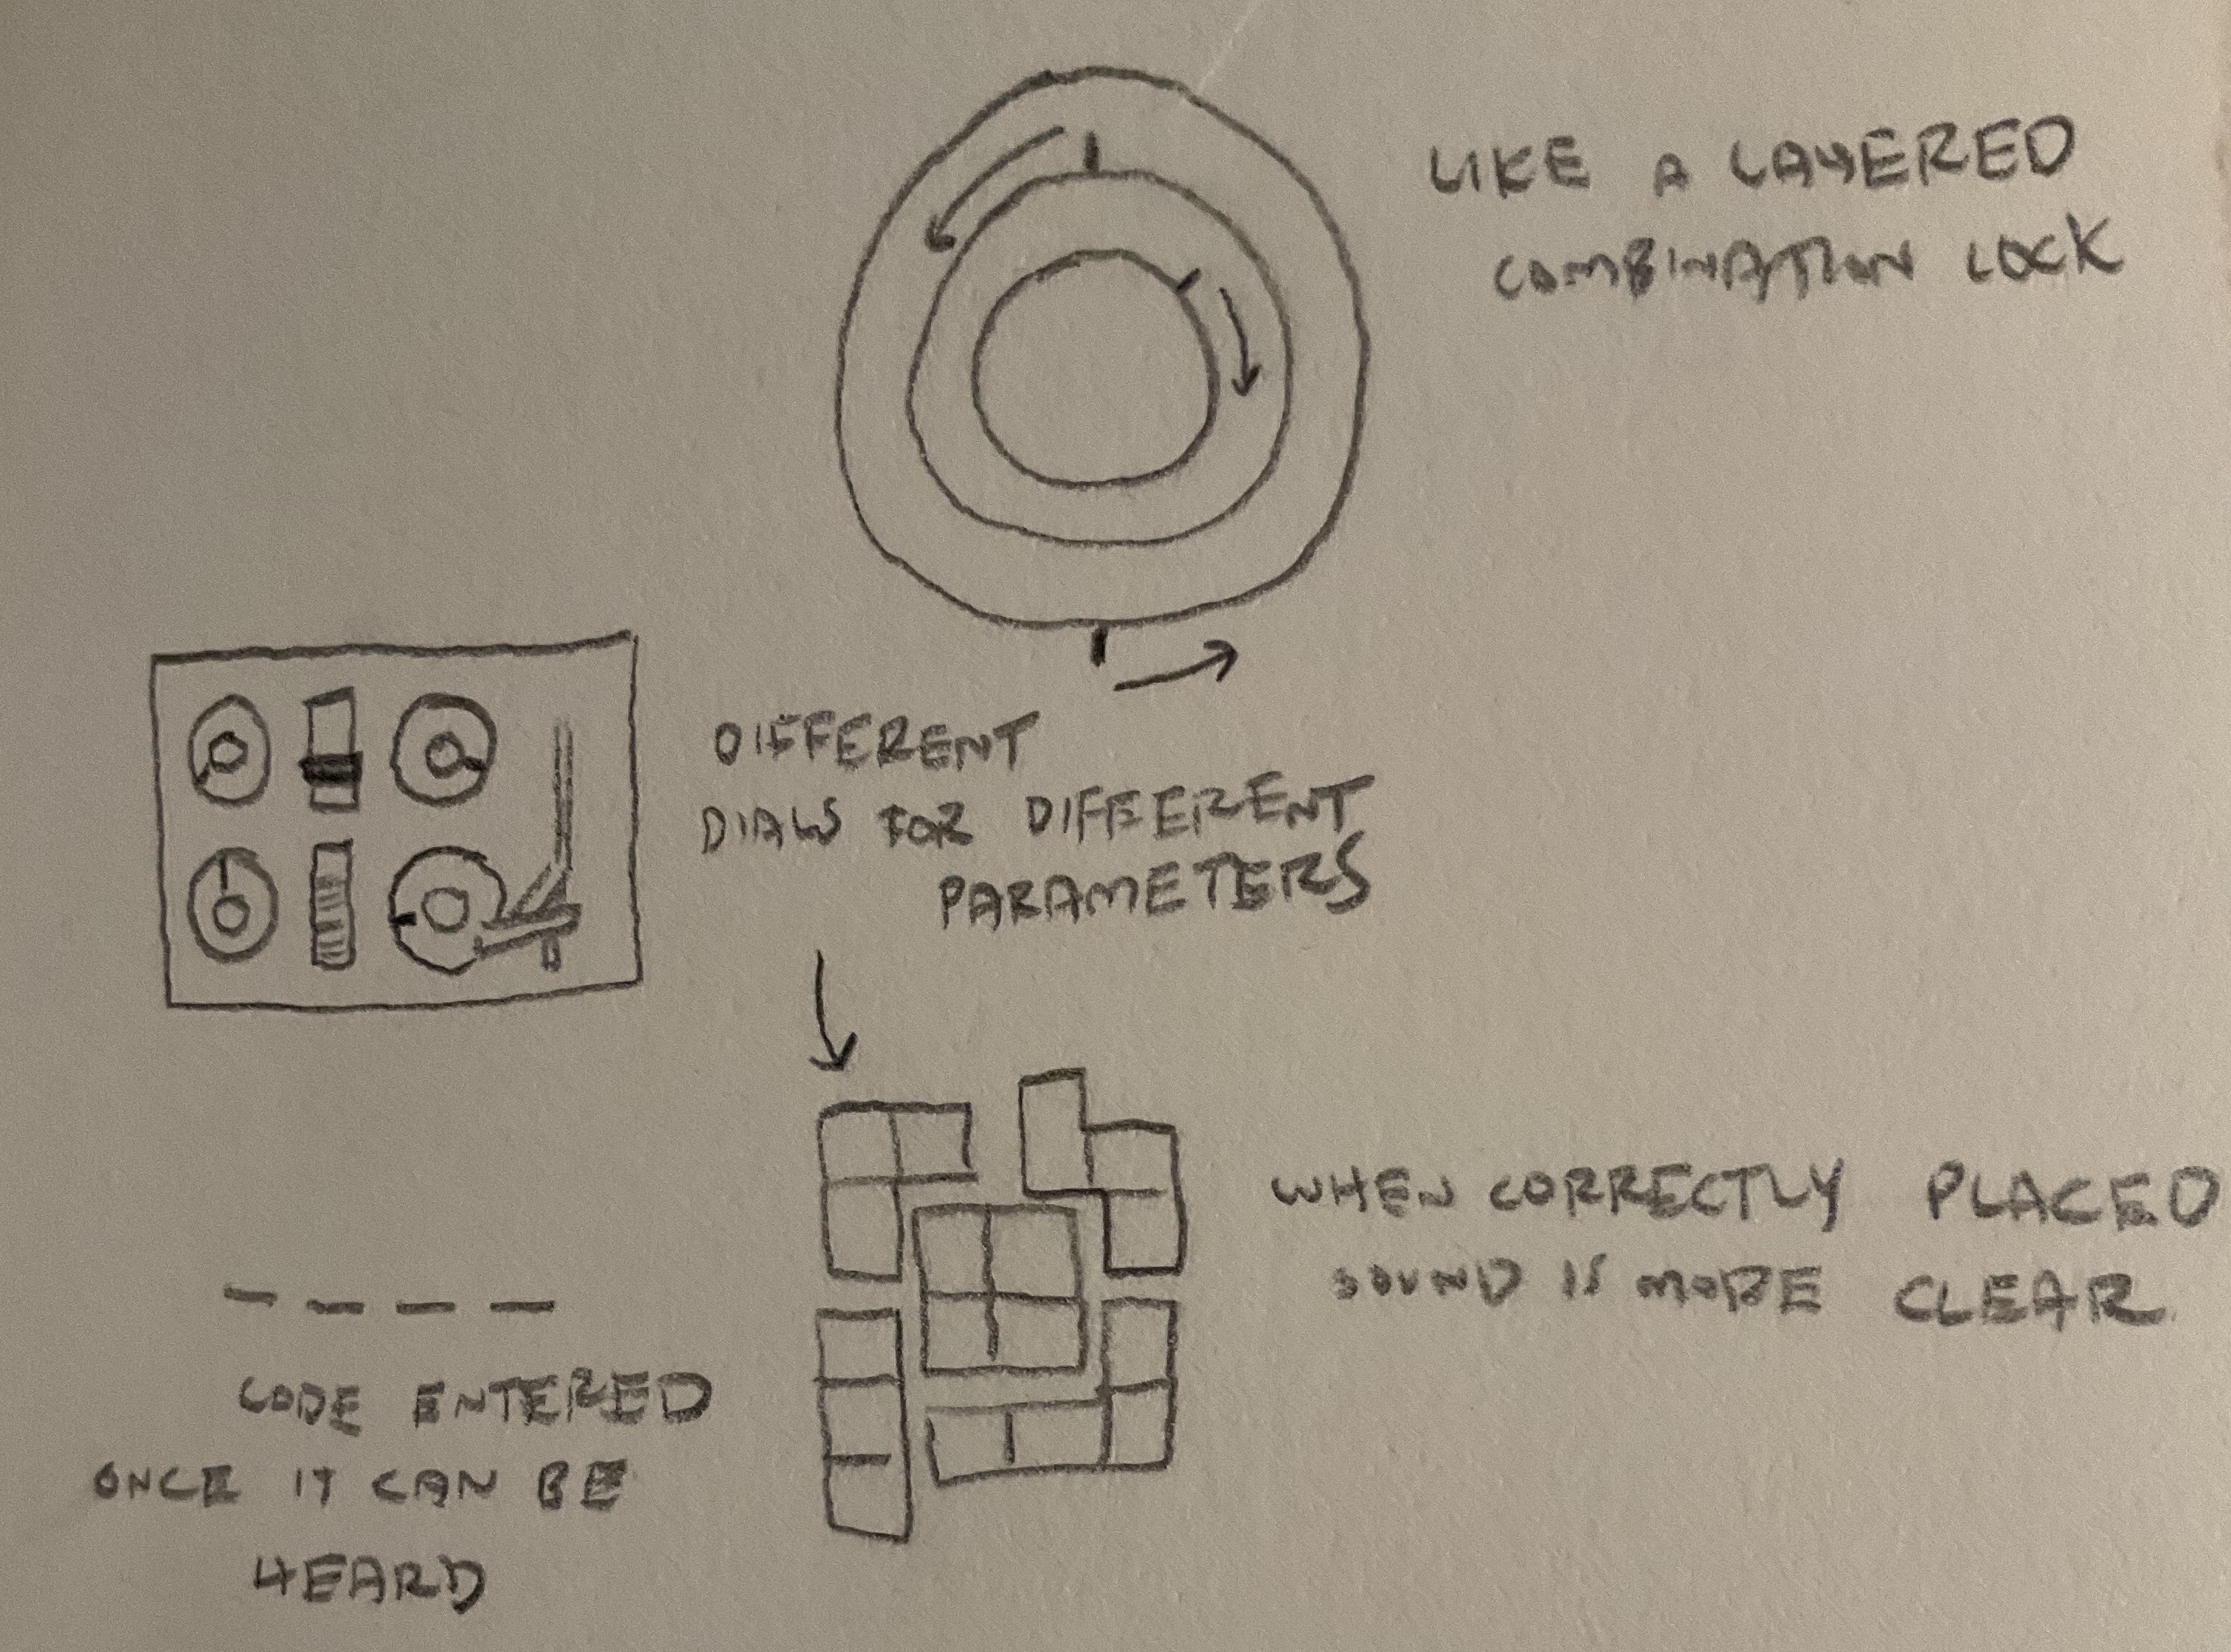 LIKE A LAYERED
COMBINATION LOCK
DIFFERENT
DIALS FOR DIFFERENT
PARAMETERS
WHEN CORRECTLY PLACED
SOUND IS MORE CLEAR
CODE ENTERED
ONCE IT CAN BE
HEARD